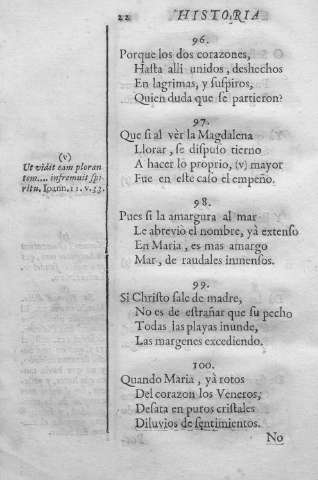 22 HISTORIA
96.
Porque los dos corazones,
Hasta alli unidos, deshechos
En lagrimas, y suspiros,
Quien duda que se partieron?
97.
Que si al vèr la Magdalena
Llorar, se dispuso tierno
A hacer lo proprio, (v) mayor
Fue en este caso el empeño.
(v)
Ut vidit eam ploran
tem.... infremuit spi-
ritu, Ioann. 11. v. 33.
98.
Pues si la amargura al mar
Le abrevio el nombre, yà extenso
En Maria, es mas amargo
Mar, de raudales inmensos.
99.
Si Christo sale de madre,
No es de estrañar que su pecho
Todas las playas inunde,
Las margenes excediendo.
100.
Quando Maria, yà rotos
Del corazon los Veneros,
Desata en puros cristales
Diluvios de sentimientos.
No